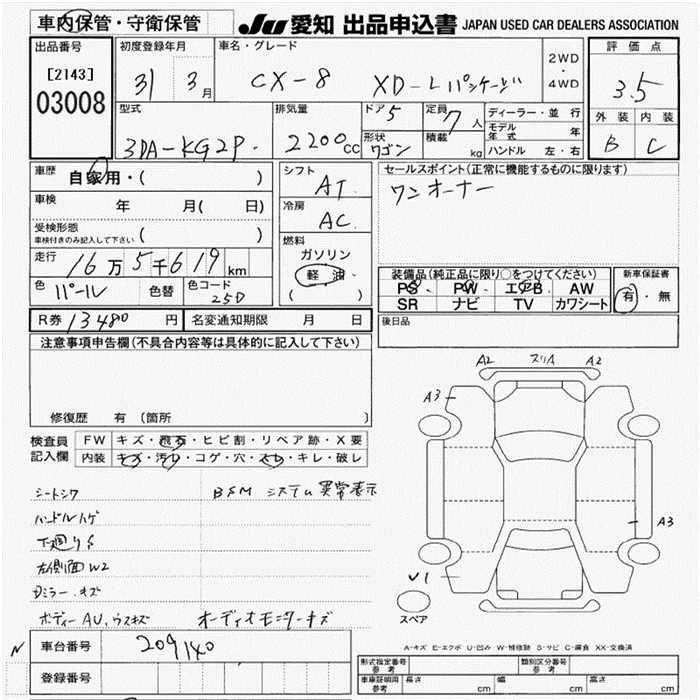 車内保管・守衛保管
JU 愛知 出品申込書 JAPAN USED CAR DEALERS ASSOCIATION
出品番号
[2143]
03008
初度登録年月
31 3月
車名・グレード
CX-8 XD-Lパッケージ
2WD
・
4WD
評価点
3.5
外装 内装
B C
型式
3DA-KG2P
排気量
2200cc
ドア 5
形状
ワゴン
定員 7人
積載 kg
ディーラー・並行
モデル年式 年
ハンドル 左・右
車歴 自家用・( )
車検 年 月( 日)
受検形態
車検付きのみ記入して下さい ( )
走行 16万5千619km
色 パール 色替 色コード 25D
R券 13480円 名変通知期限 月 日
シフト
AT
冷房
AC
燃料
ガソリン
軽油
( )
セールスポイント(正常に機能するものに限ります)
ワンオーナー
装備品(純正品に限り○をつけてください)
PS PW エアB AW
SR ナビ TV カワシート
新車保証書
有・無
後日品
注意事項申告欄(不具合内容等は具体的に記入して下さい)
修復歴 有 (箇所 )
検査員記入欄
FW キズ・飛石・ヒビ割・リペア跡・X要
内装 キズ・汚レ・コゲ・穴・スレ・キレ・破レ
シートシワ BSM システム異常表示
ハンドルハゲ
下廻りS
左側面W2
Dミラーキズ
ボディーAU、ウスキズ オーディオモニターキズ
A2 スリA A2
A3
A3
U1
スペア
A-キズ E-エクボ U-凹み W-補修跡 S-サビ C-腐食 XX-交換済
N
車台番号 209140
登録番号
形式指定番号 参考
類別区分番号 参考
車庫証明用 参考 長さ cm 幅 cm 高さ cm